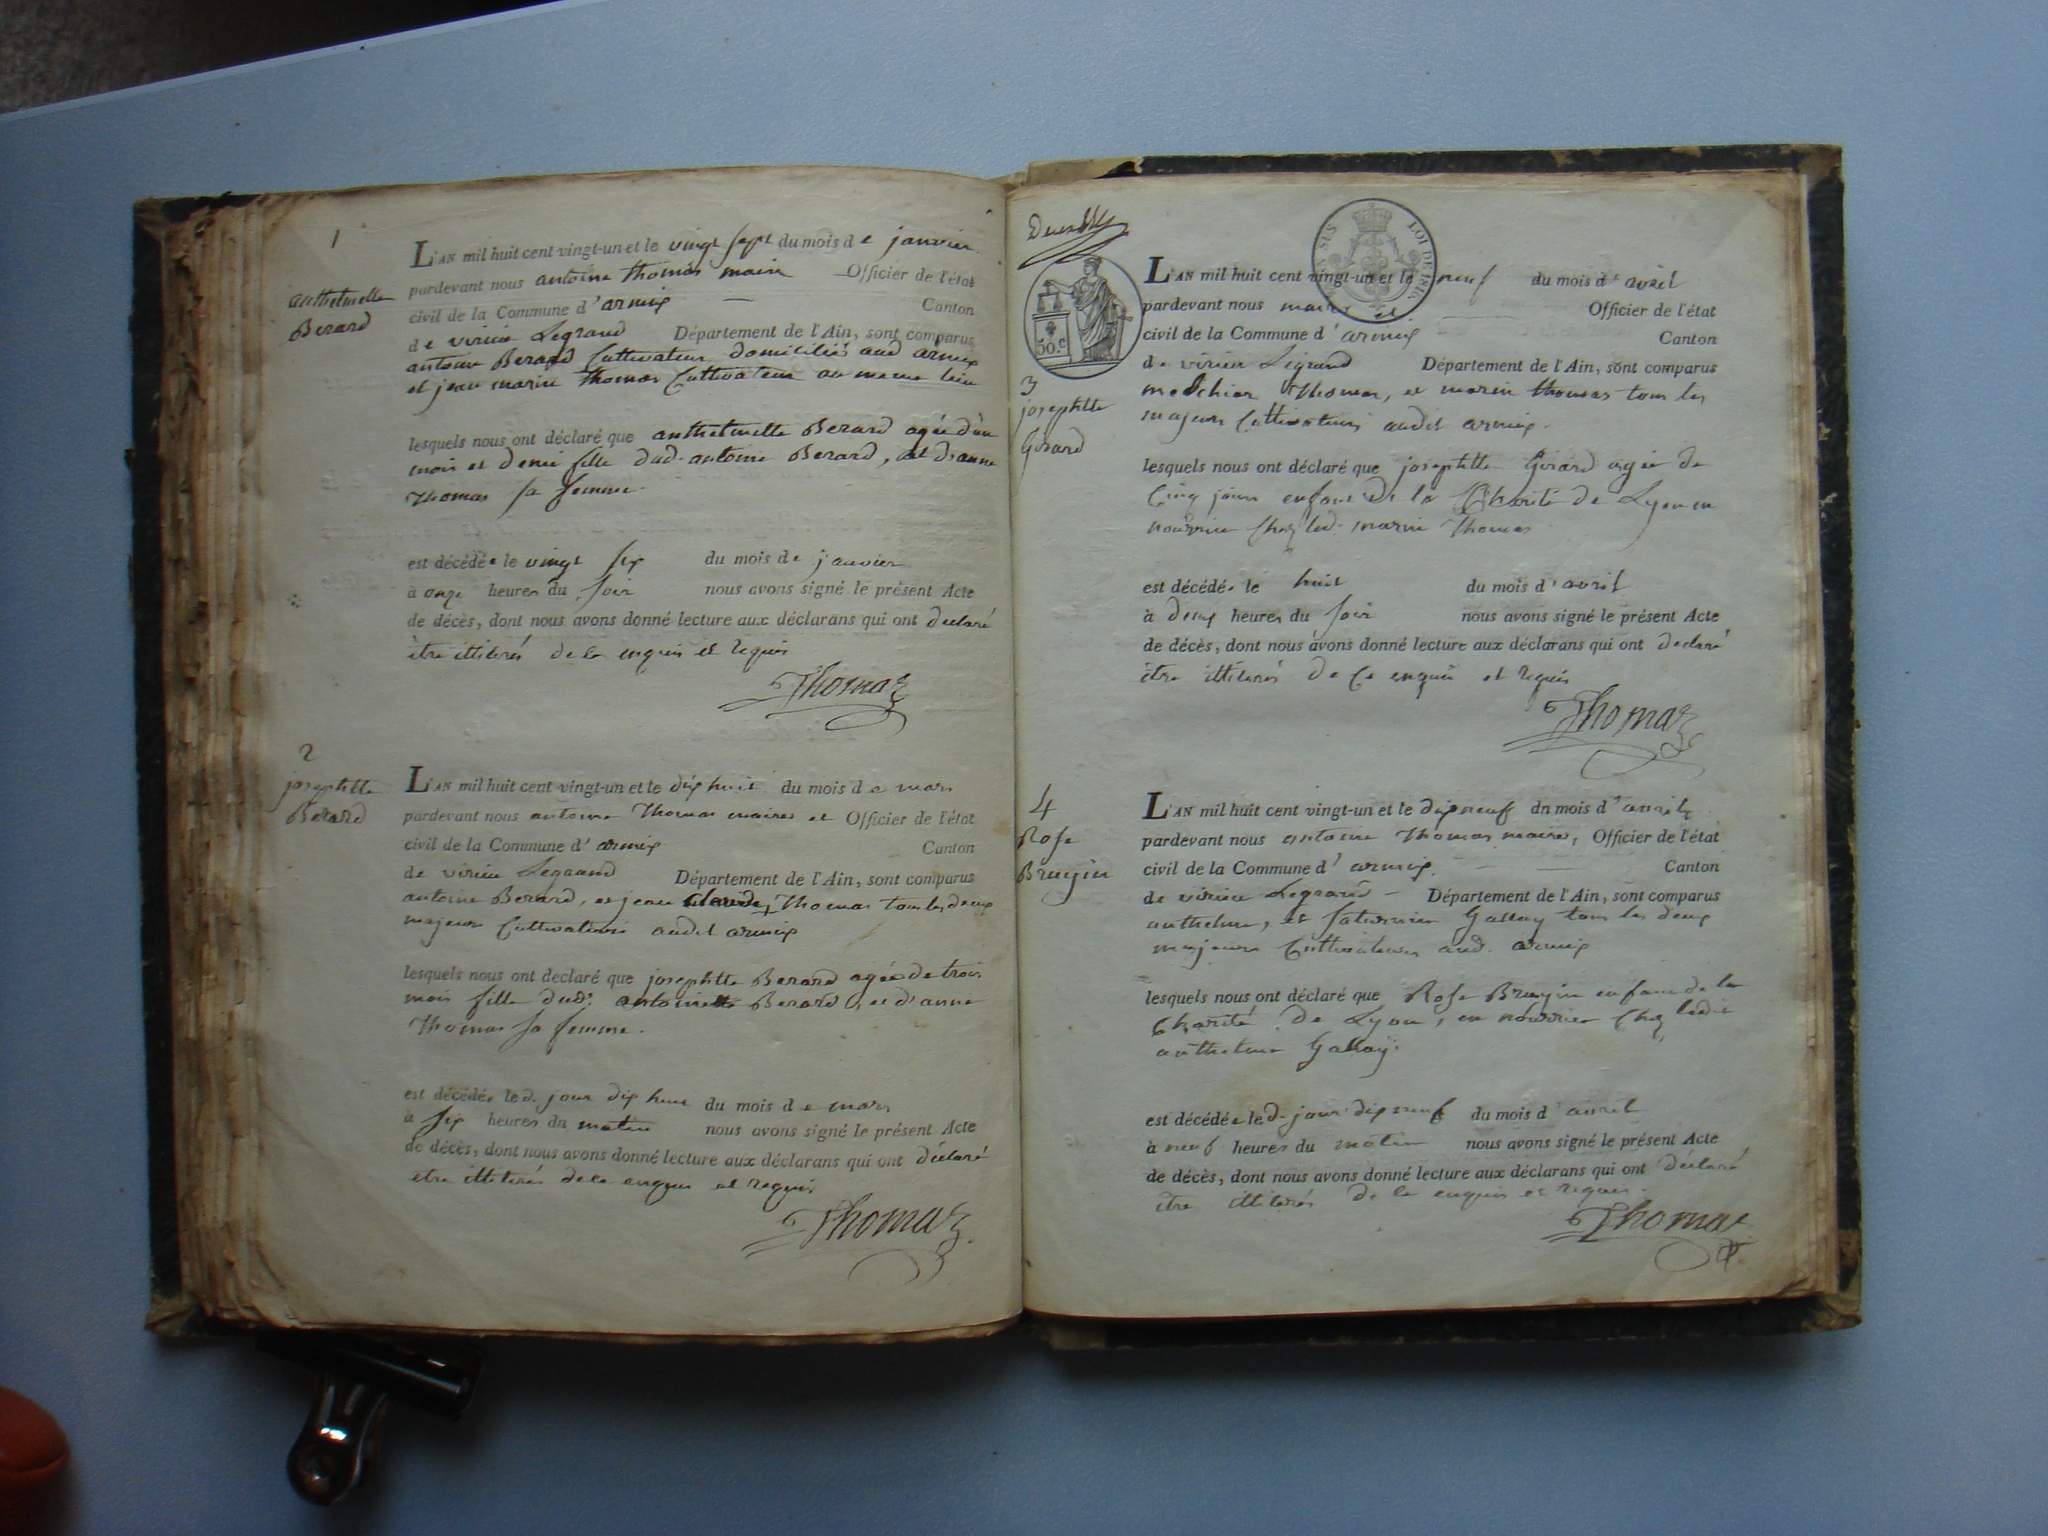 1
anthelmette
Berard
L'AN mil huit cent vingt-un et le vingt sept du mois de janvier
pardevant nous antoine thomas maire Officier de l'état
civil de la Commune d'armix Canton
de virieu Legrand Département de l'Ain, sont comparus
antoine Berard Cultivateur domicilié aud armix
et jean marin thomas Cultivateur au meme lieu
lesquels nous ont déclaré que anthelmette Berard agée d'un
mois et demi fille dud. antoine Berard, et d'anne
Thomas sa femme.
est décédée le vingt six du mois de janvier
à onze heures du soir nous avons signé le présent Acte
de décès, dont nous avons donné lecture aux déclarans qui ont déclaré
être illiterés de ce enquis et requis
Thomas
2
josephtte
Berard
L'AN mil huit cent vingt-un et le dix huit du mois de mars
pardevant nous antoine Thomas maire et Officier de l'état
civil de la Commune d'armix Canton
de virieu Legrand Département de l'Ain, sont comparus
antoine Berard, et jean claude Thomas tous les deux
majeurs Cultivateurs audit armix
lesquels nous ont déclaré que josephtte Berard agée de trois
mois fille dud. antoine Berard, et d'anne
Thomas sa femme.
est décédée le d. jour dix huit du mois de mars
à six heures du matin nous avons signé le présent Acte
de décès, dont nous avons donné lecture aux déclarans qui ont déclaré
etre illiterés de ce enquis et requis
Thomas
50.c
LOI DE
L'AN mil huit cent vingt-un et le neuf du mois d'avril
pardevant nous maire et Officier de l'état
civil de la Commune d'armix Canton
de virieu Legrand Département de l'Ain, sont comparus
melchior Thomas, et marin thomas tous les
majeurs Cultivateurs audit armix.
3
josephtte
Girard
lesquels nous ont déclaré que josephtte Girard agée de
Cinq jours enfant de la Charité de Lyon en
nourrice Chez led. marin Thomas
est décédée le huit du mois d'avril
à deux heures du soir nous avons signé le présent Acte
de décès, dont nous avons donné lecture aux déclarans qui ont declaré
être illiterés de Ce enquis et requis
Thomas
4
Rose
Brugin
L'AN mil huit cent vingt-un et le dix neuf du mois d'avril
pardevant nous antoine Thomas maire, Officier de l'état
civil de la Commune d'armix Canton
de virieu Legrand Département de l'Ain, sont comparus
anthelme, et saturnin Gallay tous les deux
majeurs Cultivateurs aud. armix
lesquels nous ont déclaré que Rose Brugin enfant de la
Charité de Lyon, en nourrice Chez ledit
anthelme Gallay.
est décédée le d. jour dix neuf du mois d'avril
à neuf heures du matin nous avons signé le présent Acte
de décès, dont nous avons donné lecture aux déclarans qui ont déclaré
être illiterés de ce enquis et requis.
Thomas